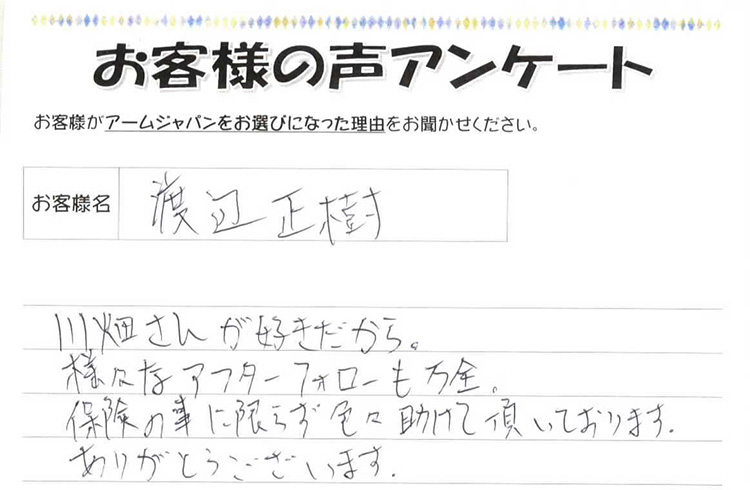 お客様の声アンケート
お客様がアームジャパンをお選びになった理由をお聞かせください。
お客様名 渡辺正樹
川畑さんが好きだから。
様々なアフターフォローも万全。
保険の事に限らず色々助けて頂いております.
ありがとうございます.